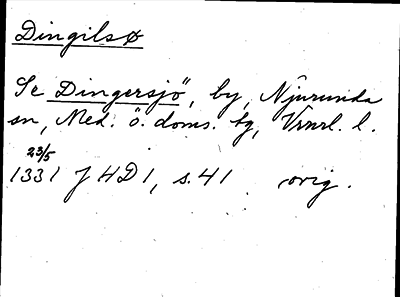 Dingilsø
Se Dingersjö, by, Njurunda
sn, Med. ö. doms. tg, Vrnrl. l.
23/5
1331 J HD 1, s. 41 orig.